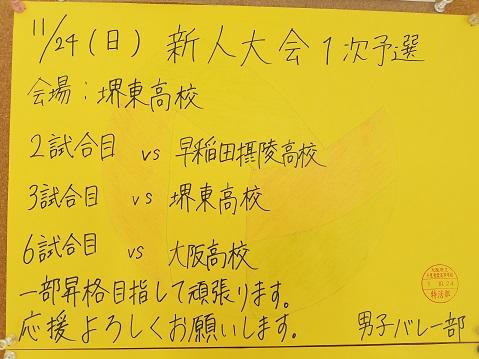 11/24(日) 新人大会1次予選
会場:堺東高校
2試合目 vs 早稲田摂陵高校
3試合目 vs 堺東高校
6試合目 vs 大阪高校
一部昇格目指して頑張ります。
応援よろしくお願いします。
男子バレー部
特活部